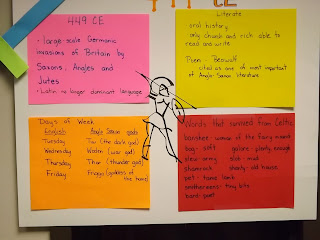 449 CE
• large-scale Germanic
invasions of Britain by
Saxons, Angles and
Jutes
• Latin no longer dominant language
Literate
• oral history
• only church and rich able to
read and write
Poem - Beowulf
cited as one of most important
of Anglo-Saxon literature
Days of Week
English Anglo Saxon gods
Tuesday Tiu (the dark god)
Wednesday Wodin (war god)
Thursday Thor (thunder god)
Friday Frigga (goddess of
the home)
Words that survived from Celtic
banshee- woman of the fairy mount
bog- soft galore- plenty, enough
slew- army slob- mud
shamrock shanty- old house
pet- tame lamb
smithereens- tiny bits
bard- poet